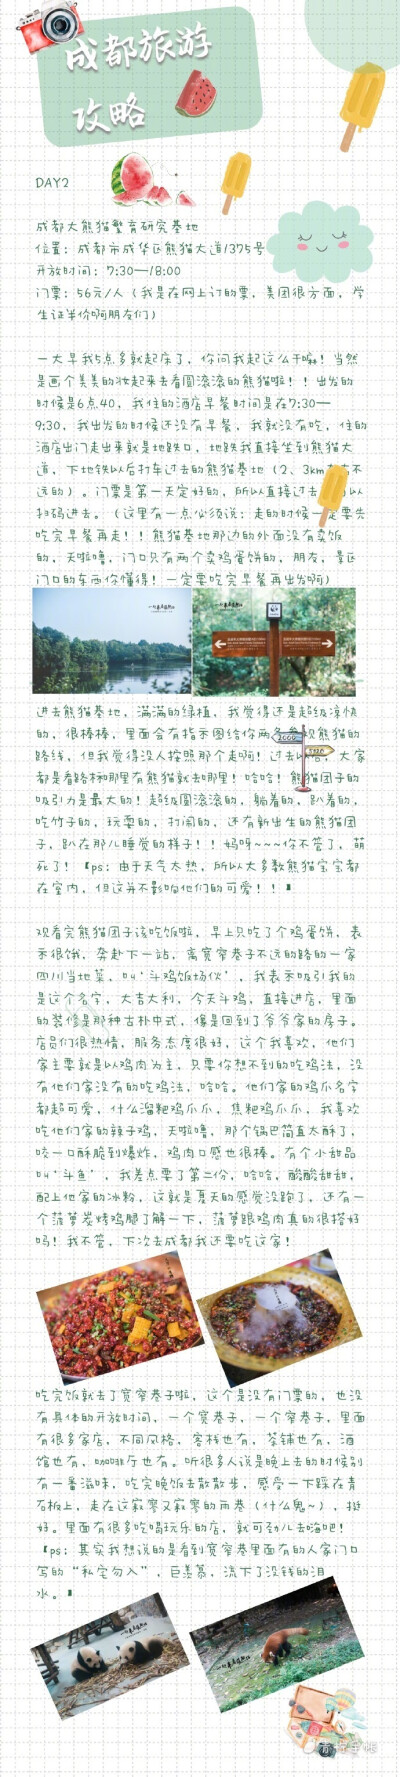 成都旅游
攻略
DAY2
成都大熊猫繁育研究基地
位置：成都市成华区熊猫大道1375号
开放时间：7:30—18:00
门票：56元/人（我是在网上订的票，美团很方面，学
生证半价啊朋友们）
一大早我5点多就起床了，你问我起这么干嘛！当然
是画个美美的妆起来去看圆滚滚的熊猫啦！！出发的
时候是6点40，我住的酒店早餐时间是在7:30—
9:30，我出发的时候还没有早餐，我就没有吃，住的
酒店出门走出来就是地铁口，地铁我直接坐到熊猫大
道，下地铁以后打车过去的熊猫基地（2、3km左右不
远的）。门票是第一天定好的，所以直接过去
扫码进去。（这里有一点必须说：走的时候一定要先
吃完早餐再走！！熊猫基地那边的外面没有卖饭
的，天啦噜，门口只有两个卖鸡蛋饼的，朋友，景区
门口的东西你懂得！一定要吃完早餐再出发啊）
进去熊猫基地，满满的绿植，我觉得还是超级凉快
的，很棒棒，里面会有指示图给你两条参观熊猫的
路线，但我觉得没人按照那个走啊！过去以后，大家
都是看路标哪里有熊猫就去哪里！哈哈！熊猫团子的
吸引力是最大的！超级圆滚滚的，躺着的，趴着的，
吃竹子的，玩耍的，打闹的，还有新出生的熊猫团
子，趴在那儿睡觉的样子！！妈呀~~~你不管了，萌
死了！【ps：由于天气太热，所以大多数熊猫宝宝都
在室内，但这并不影响他们的可爱！！】
观看完熊猫团子该吃饭啦，早上只吃了个鸡蛋饼，表
示很饿，奔赴下一站，离宽窄巷子不远的路的一家
四川当地菜、叫‘斗鸡饭场伙’，我表示吸引我的
是这个名字，大吉大利，今天斗鸡，直接进店，里面
的装修是那种古朴中式，像是回到了爷爷家的房子。
店员们很热情，服务态度很好，这个我喜欢，他们
家主要就是以鸡肉为主，只要你想不到的吃鸡法，没
有他们家没有的吃鸡法，哈哈。他们家的鸡爪名字
都超可爱，什么溜粑鸡爪爪，焦粑鸡爪爪，我喜欢
吃他们家的辣子鸡，天啦噜，那个锅巴简直太酥了，
咬一口酥脆到爆炸，鸡肉口感也很棒。有个小甜品
叫‘斗鱼’，我差点要了第二份，哈哈，酸酸甜甜，
配上他家的冰粉，这就是夏天的感觉没跑了，还有一
个菠萝炭烤鸡腿了解一下，菠萝跟鸡肉真的很搭好
吗！我不管，下次去成都我还要吃这家！
吃完饭就去了宽窄巷子啦，这个是没有门票的，也没
有具体的开放时间，一个宽巷子，一个窄巷子，里面
有很多家店，不同风格，客栈也有，茶铺也有，酒
馆也有，咖啡厅也有。听很多人说是晚上去的时候别
有一番滋味，吃完晚饭去散散步，感受一下踩在青
石板上，走在这寂寥又寂寥的雨巷（什么鬼~），挺
好。里面有很多吃喝玩乐的店，就可劲儿去嗨吧！
【ps：其实我想说的是看到宽窄巷里面有的人家门口
写的“私宅勿入”，巨羡慕，流下了没钱的泪
水。】